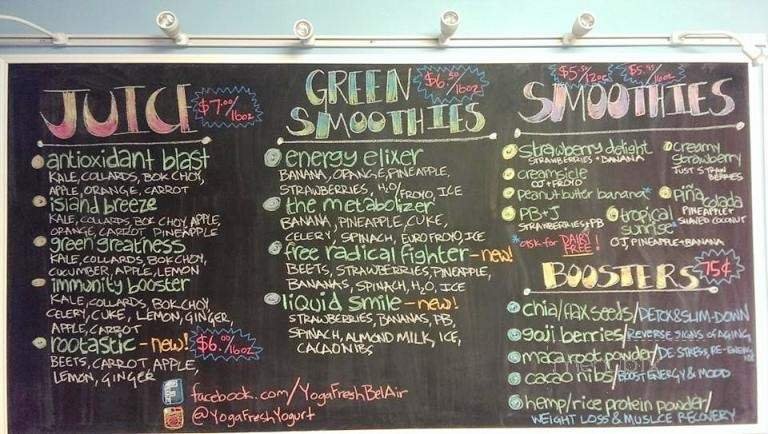 JUICE
$7.00/16oz
antioxidant blast
KALE, COLLARDS, BOK CHOY,
APPLE, ORANGE, CARROT
island breeze
KALE, COLLARDS, BOK CHOY, APPLE,
ORANGE, CARROT PINEAPPLE
green greatness
KALE, COLLARDS, BOK CHOY,
CUCUMBER, APPLE, LEMON
immunity booster
KALE, COLLARDS, BOK CHOY,
CELERY, CUKE, LEMON, GINGER,
APPLE, CARROT
rootastic - new!
$6.00/16oz
BEETS, CARROT APPLE,
LEMON, GINGER
facebook.com/YogaFreshBelAir
@YogaFreshYogurt
GREEN
$6.50/16oz
SMOOTHIES
energy elixer
BANANA, ORANGE, PINEAPPLE,
STRAWBERRIES, H2O/FROYO, ICE
the metabolizer
BANANA, PINEAPPLE, CUKE,
CELERY, SPINACH, EUROFROYO, ICE
free radical fighter - new!
BEETS, STRAWBERRIES, PINEAPPLE,
BANANAS, SPINACH, H2O, ICE
liquid smile - new!
STRAWBERRIES, BANANAS, PB,
SPINACH, ALMOND MILK, ICE,
CACAO NIBS
/12oz
/16oz
SMOOTHIES
strawberry delight
STRAWBERRIES + BANANA
creamsicle
OJ + FROYO
peanut butter banana*
PB+J
STRAWBERRIES + PB
*ask for DAIRY FREE!
creamy
strawberry
JUST STRAWBERRIES
piña
colada
PINEAPPLE +
SHAVED COCONUT
tropical
sunrise*
OJ, PINEAPPLE + BANANA
BOOSTERS
75¢
chia/flax seeds/DETOX & SLIM-DOWN
goji berries/REVERSE SIGNS OF AGING
maca root powder/DE-STRESS, RE-ENERGIZE
cacao nibs/BOOST ENERGY & MOOD
hemp/rice protein powder/
WEIGHT LOSS & MUSLCE RECOVERY